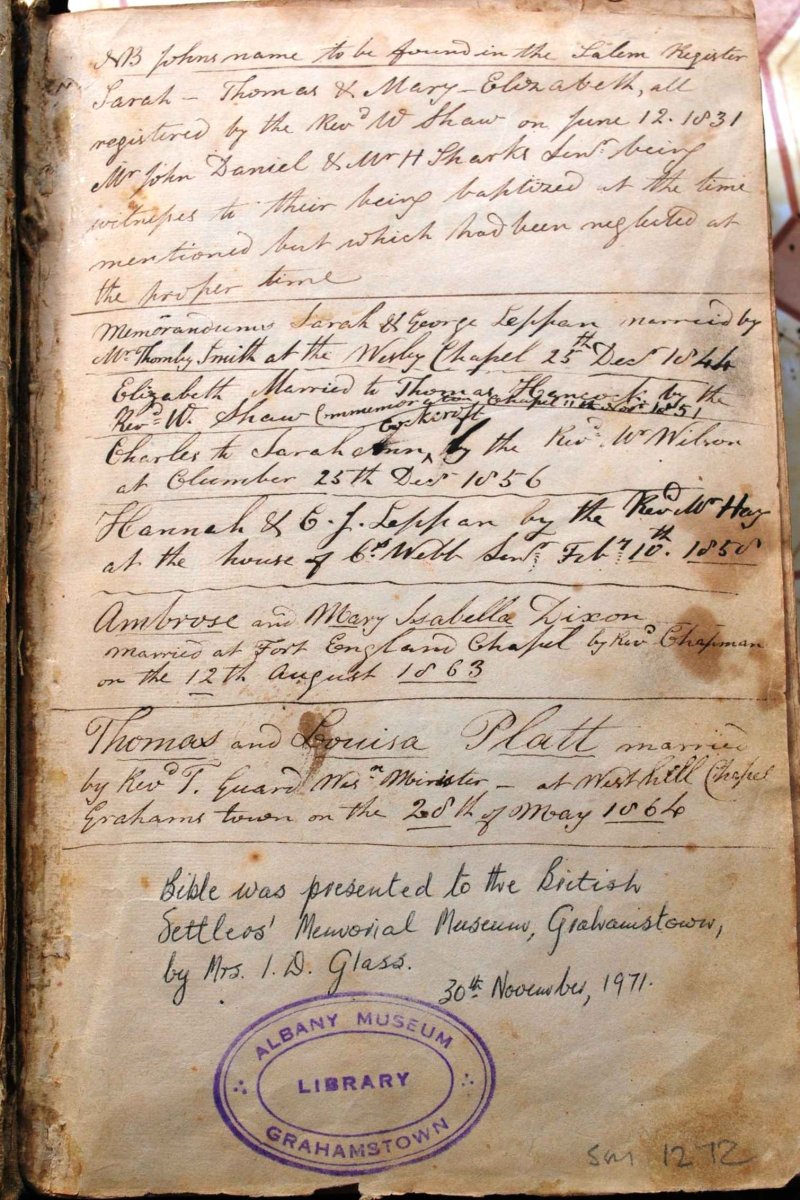 NB Johns name to be found in the Salem Register
Sarah - Thomas & Mary - Elizabeth, all
registered by the Revd W Shaw on June 12. 1831
Mr John Daniel & Mr H Sharks Senr being
witnesses to their being baptized at the time
mentioned but which had been neglected at
the proper time
Memorandums Sarah & George Leppan married by
Mr Thornby Smith at the Wesley Chapel 25th Decr 1844
Elizabeth Married to Thomas Hancock by the
Revd W. Shaw Commemoration Chapel Novr 1851
Cockcroft
Charles to Sarah Ann ^ by the Revd Wr Wilson
at Clumber 25th Decr 1856
Hannah & C. J. Leppan by the Revd Mr Hay
at the house of Webb Senr Feby 10th. 1858
Ambrose and Mary Isabella Dixon
married at Fort England Chapel by Revd Chapman
on the 12th August 1863
Thomas and Louisa Platt married
by Revd T. Guard Wesn Minister - at West hill Chapel
Grahams town on the 28th of May 1864
Bible was presented to the British
Settlers' Memorial Museum, Grahamstown,
by Mrs. I. D. Glass.
30th November, 1971.
ALBANY MUSEUM
LIBRARY
GRAHAMSTOWN
SM 1272